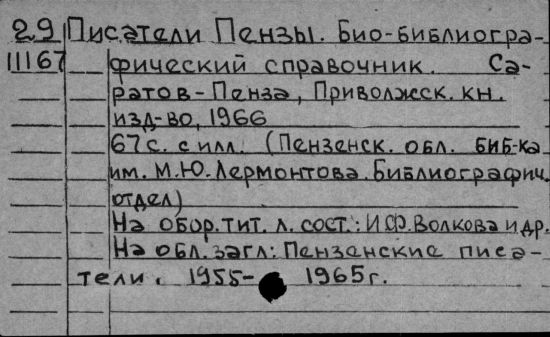 29 Писатели Пензы. Био-библиогра-
11167 фический справочник. Са-
ратов-Пенза, Приволжск. кн.
изд-во, 1966
67с. с илл. (Пензенск. обл. биб-ка
им. М.Ю. Лермонтова. Библиографич.
отдел)
На обор. тит. л. сост.: И.Ф. Волкова и др.
На обл. загл: Пензенские писа-
тели. 1955- 1965г.